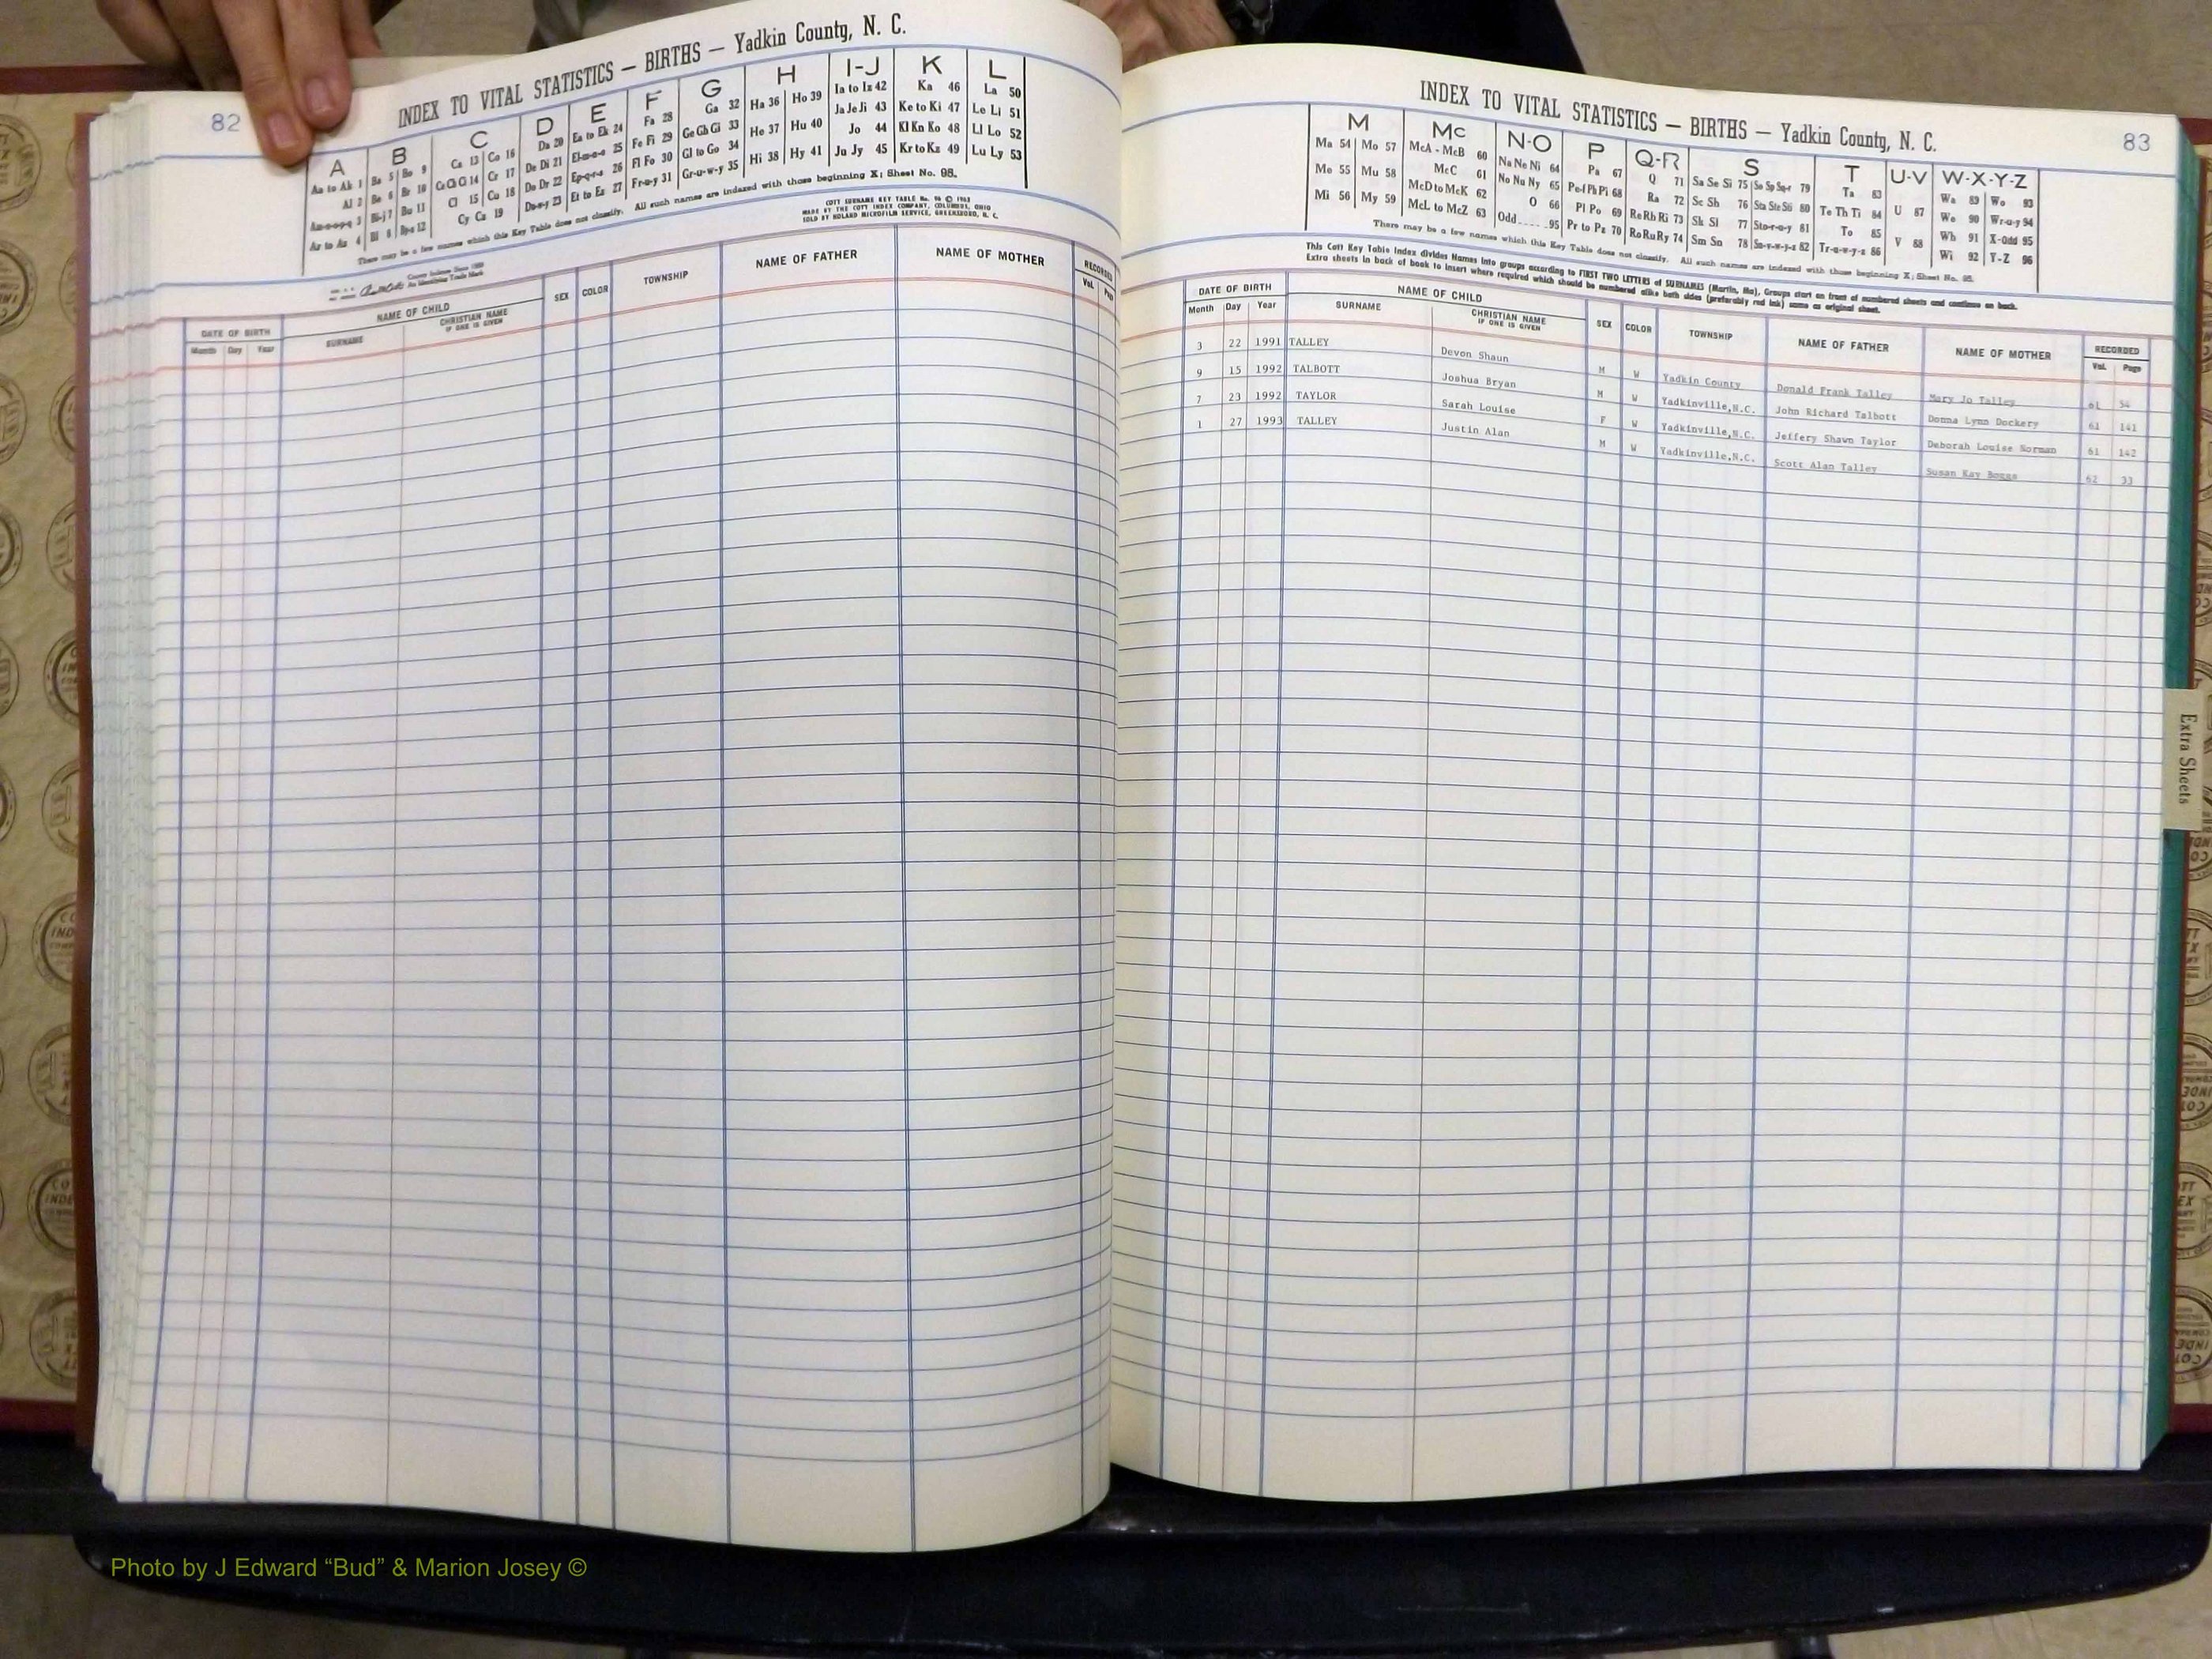 82
INDEX TO VITAL STATISTICS — BIRTHS — Yadkin County, N. C.
A B C D E F G H I-J K L
Aa to Ak 1 Ba 5 Bo 9 Ca 13 Co 16 Da 20 Ea to Ek 24 Fa 28 Ga 32 Ha 36 Ho 39 Ia to Iz 42 Ka 46 La 50
Al 2 Be 6 Br 10 Ce Ch Ci 14 Cr 17 De Di 21 El-m-n-o 25 Fe Fi 29 Ge Gh Gi 33 He 37 Hu 40 Ja Je Ji 43 Ke to Ki 47 Le Li 51
Am-n-o-p-q 3 Bi-j 7 Bu 11 Cl 15 Cu 18 Do Dr 22 Ep-q-r-s 26 Fl Fo 30 Gl to Go 34 Hi 38 Hy 41 Jo 44 Kl Kn Ko 48 Ll Lo 52
Ar to Az 4 Bl 8 By-z 12 Cy Cz 19 Du-w-y 23 Et to Ez 27 Fr-u-y 31 Gr-u-w-y 35 Ju Jy 45 Kr to Kz 49 Lu Ly 53
There may be a few names which this Key Table does not classify. All such names are indexed with those beginning X; Sheet No. 95.
COTT SURNAME KEY TABLE No. 96 © 1963
MADE BY THE COTT INDEX COMPANY, COLUMBUS, OHIO
SOLD BY HOLAND MICROFILM SERVICE, GREENSBORO, N. C.
County Indexes Since 1888
An Identifying Trade Mark
DATE OF BIRTH NAME OF CHILD SEX COLOR TOWNSHIP NAME OF FATHER NAME OF MOTHER RECORDED
Month Day Year SURNAME CHRISTIAN NAME IF ONE IS GIVEN Vol. Page
INDEX TO VITAL STATISTICS — BIRTHS — Yadkin County, N. C.
83
M Mc N-O P Q-R S T U-V W-X-Y-Z
Ma 54 Mo 57 McA - McB 60 Na Ne Ni 64 Pa 67 Q 71 Sa Se Si 75 So Sp Sq-r 79 Ta 83 U 87 Wa 89 Wo 93
Me 55 Mu 58 McC 61 No Nu Ny 65 Pe-f Ph Pi 68 Ra 72 Sc Sh 76 Sta Ste Sti 80 Te Th Ti 84 V 88 We 90 Wr-u-y 94
Mi 56 My 59 McD to McK 62 O 66 Pl Po 69 Re Rh Ri 73 Sk Sl 77 Sto-r-u-y 81 To 85 Wh 91 X-Odd 95
McL to McZ 63 Odd 95 Pr to Pz 70 Ro Ru Ry 74 Sm Sn 78 Su-v-w-y-z 82 Tr-u-w-y-z 86 Wi 92 Y-Z 96
There may be a few names which this Key Table does not classify. All such names are indexed with those beginning X; Sheet No. 95.
This Cott Key Table Index divides Names into groups according to FIRST TWO LETTERS of SURNAMES (Martin, Ma), Groups start on front of numbered sheets and continue on back.
Extra sheets in back of book to insert where required which should be numbered alike both sides (preferably red ink) same as original sheet.
DATE OF BIRTH NAME OF CHILD SEX COLOR TOWNSHIP NAME OF FATHER NAME OF MOTHER RECORDED
Month Day Year SURNAME CHRISTIAN NAME IF ONE IS GIVEN Vol. Page
3 22 1991 TALLEY Devon Shaun M W Yadkin County Donald Frank Talley Mary Jo Talley 61 54
9 15 1992 TALBOTT Joshua Bryan M W Yadkinville,N.C. John Richard Talbott Donna Lynn Dockery 61 141
7 23 1992 TAYLOR Sarah Louise F W Yadkinville,N.C. Jeffery Shawn Taylor Deborah Louise Norman 61 142
1 27 1993 TALLEY Justin Alan M W Yadkinville,N.C. Scott Alan Talley Susan Kay Boggs 62 33
Extra Sheets
Photo by J Edward “Bud” & Marion Josey ©